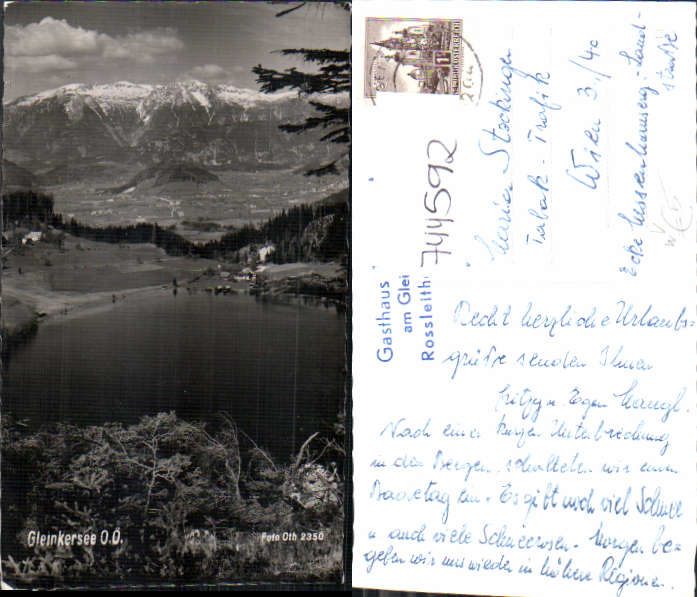 Gleinkersee O.Ö.
Foto Oth 2350
744592
Gasthaus
am Glei
Rossleith
Maria Stockinger
Tabak - Trafik
Wien 3./40
Ecke Land-
straße
Recht herzliche Urlaubs=
grüße senden Ihnen
Fritzy u. Egon
Nach einer kurzen Unterbrechung
in den Bergen, schalteten wir einen
Badetag ein. Es gibt noch viel Schnee
u. auch viele Schneerosen. Morgen be=
geben wir uns wieder in höhere Regionen.